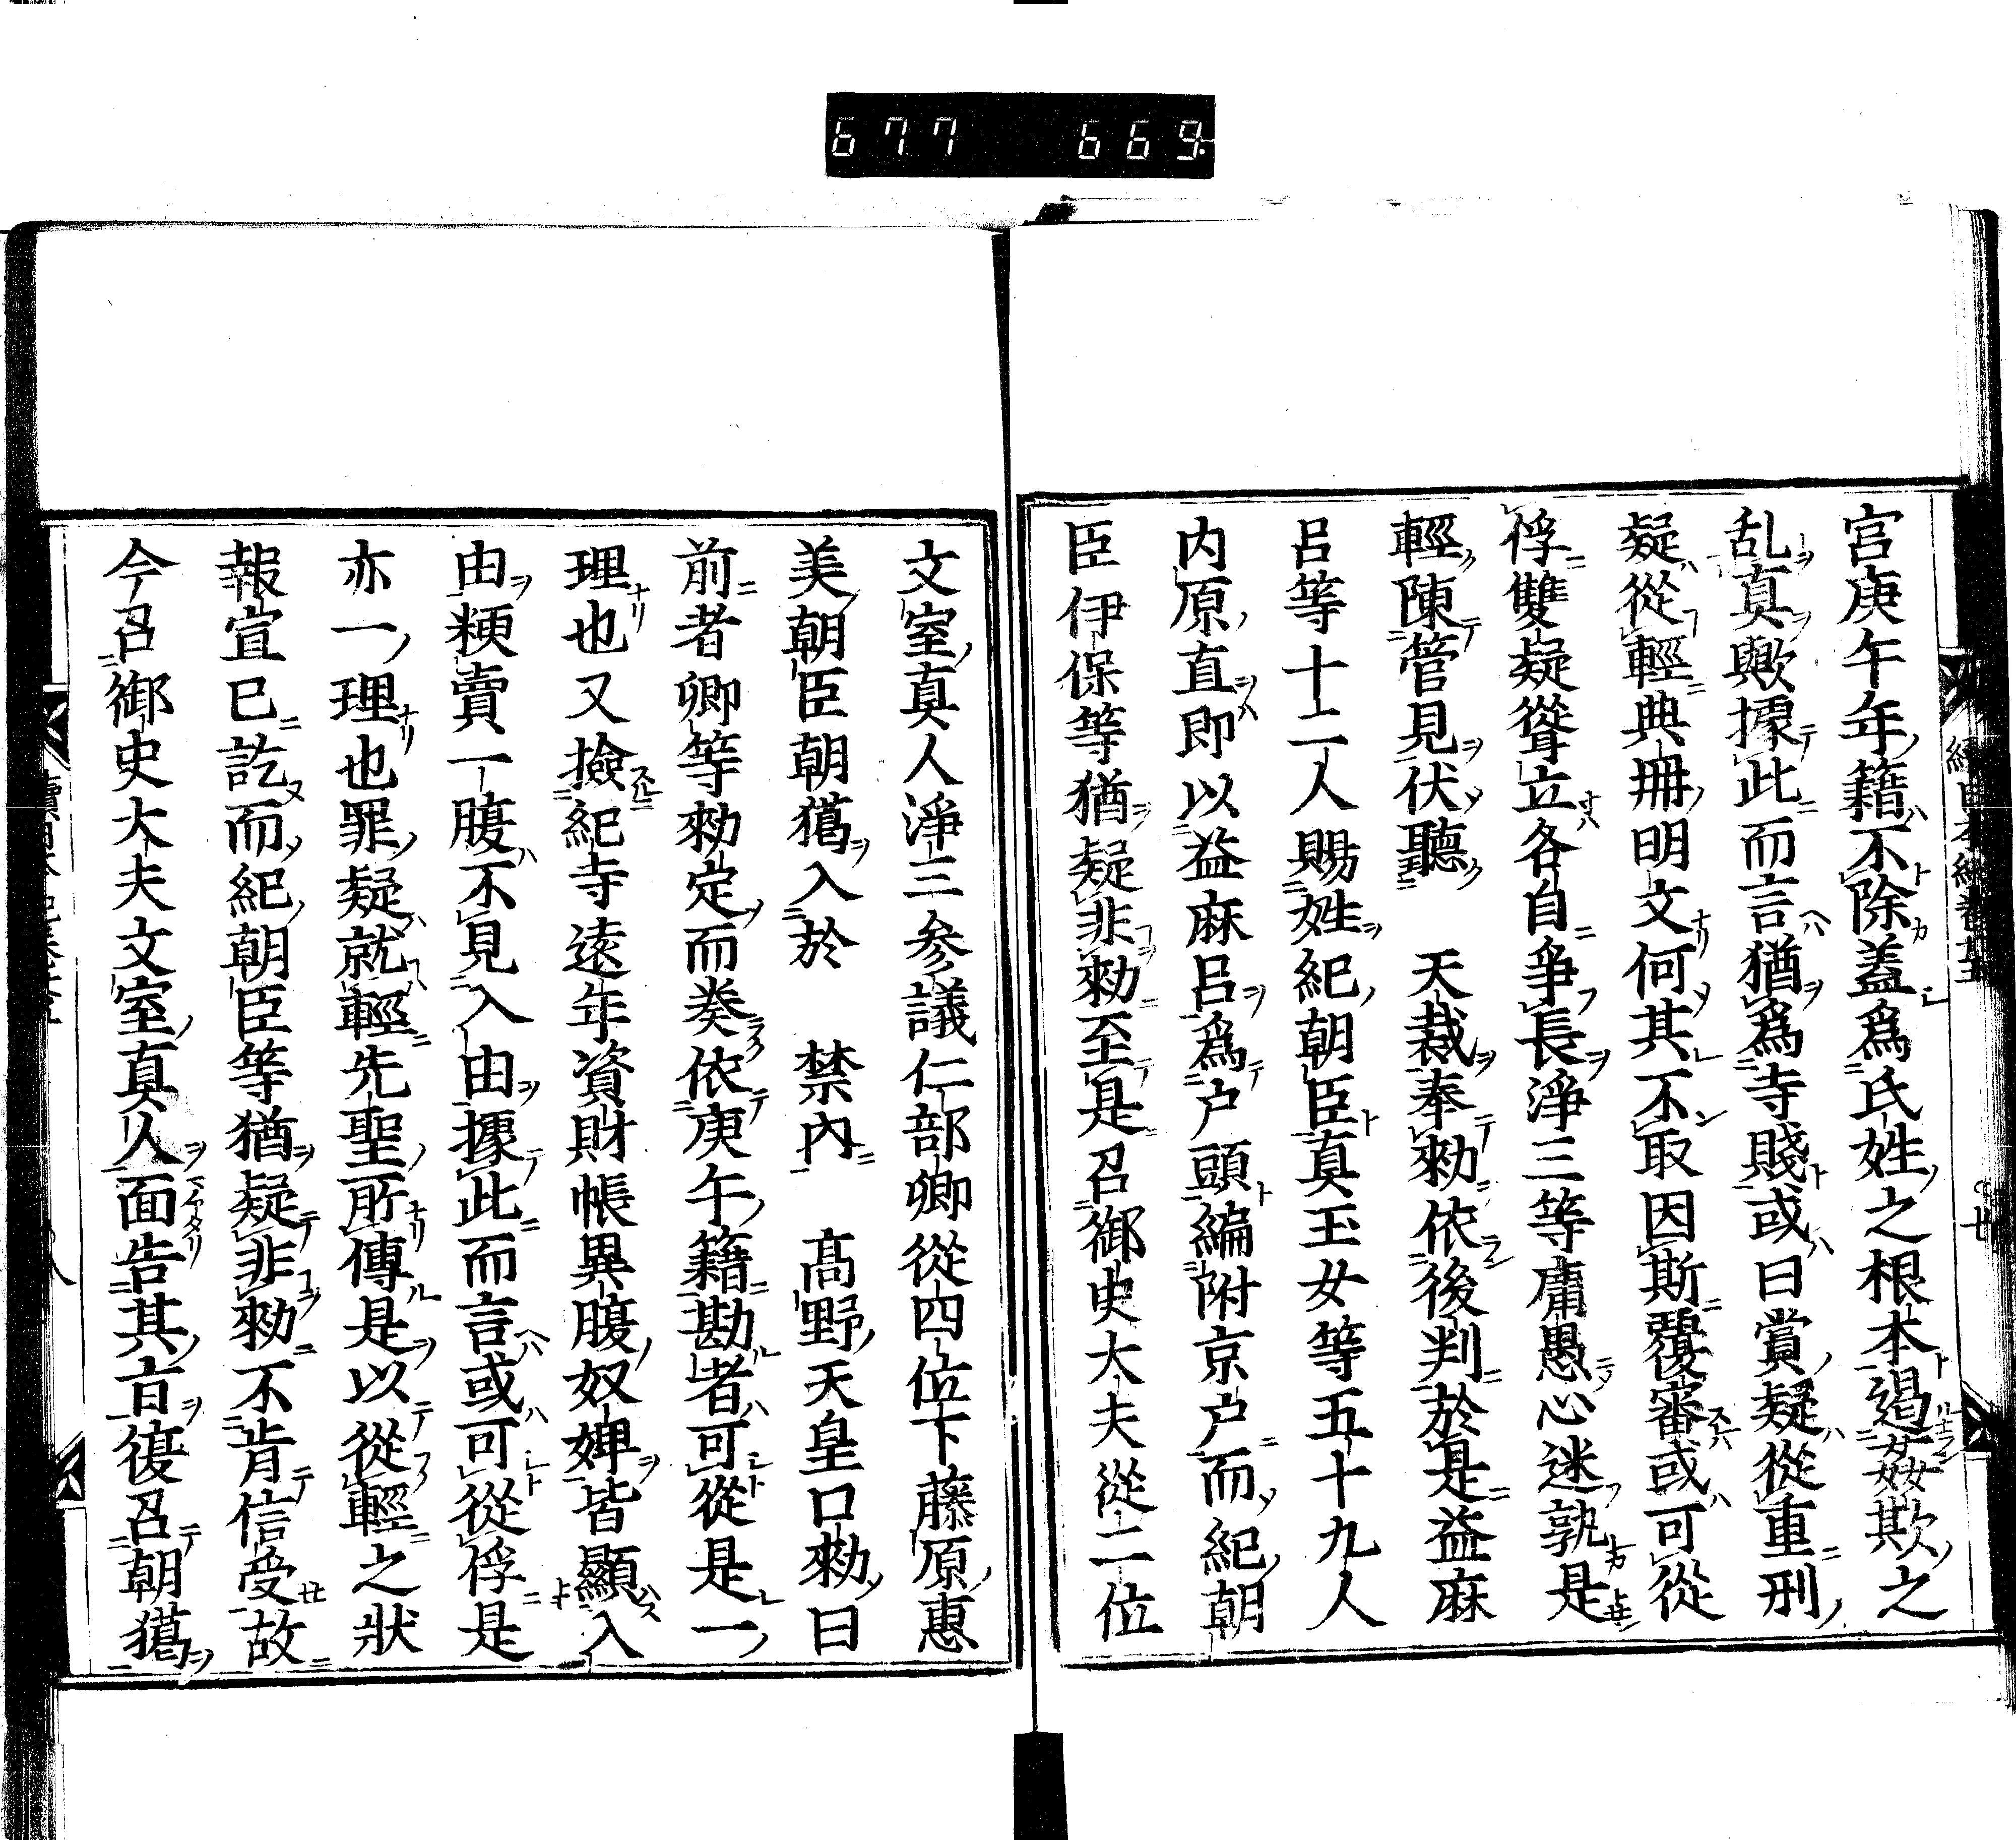 677 669
宮庚午年籍不除蓋爲氏姓之根本遏姦欺之
乱真歟據此而言猶爲寺賤或曰賞疑從重刑
疑從輕典冊明文何其不取因斯覆審或可從
俘雙疑聳立各自爭長淨三等庸愚心迷孰是
輕陳管見伏聽 天裁奉勑依後判於是益麻
呂等十二人賜姓紀朝臣真玉女等五十九人
内原直即以益麻呂爲户頭編附京户而紀朝
臣伊保等猶疑非勑至是召御史大夫從二位
文室真人淨三参議仁部卿從四位下藤原惠
美朝臣朝獦入於 禁內 髙野天皇口勑曰
前者卿等勑定而奏依庚午籍勘者可從是一
理也又撿紀寺遠年資財帳異腹奴婢皆顯入
由粳賣一腹不見入由據此而言或可從俘是
亦一理也罪疑就輕先聖所傳是以從輕之狀
報宣已訖而紀朝臣等猶疑非勑不肯信受故
今召御史大夫文室真人面告其㫖復召朝獦